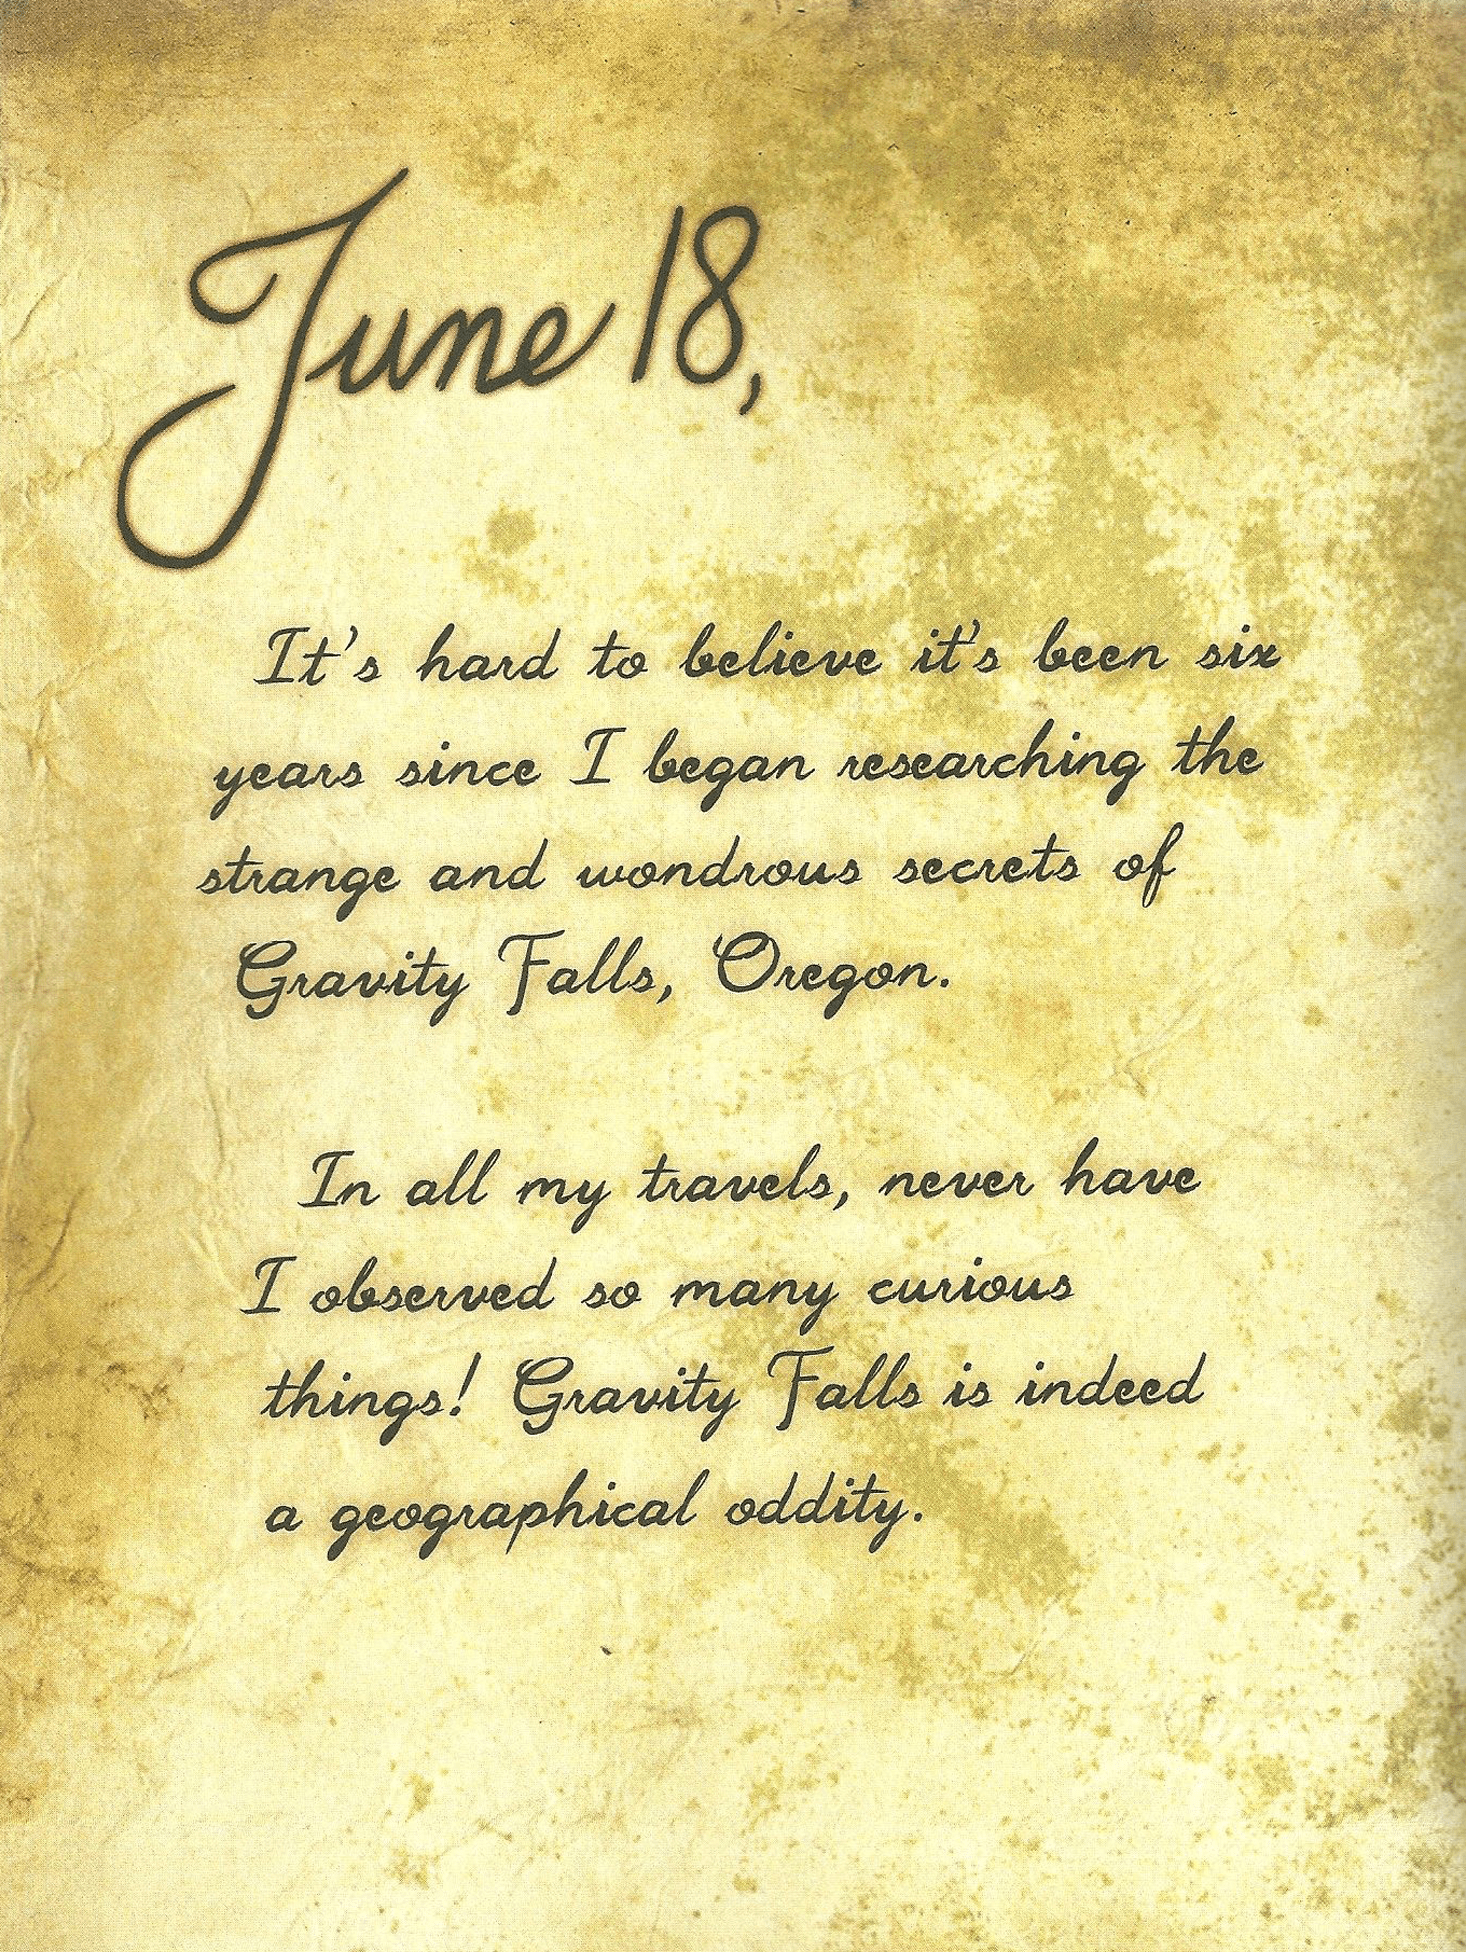 June 18,
It's hard to believe it's been six
years since I began researching the
strange and wondrous secrets of
Gravity Falls, Oregon.
In all my travels, never have
I observed so many curious
things! Gravity Falls is indeed
a geographical oddity.